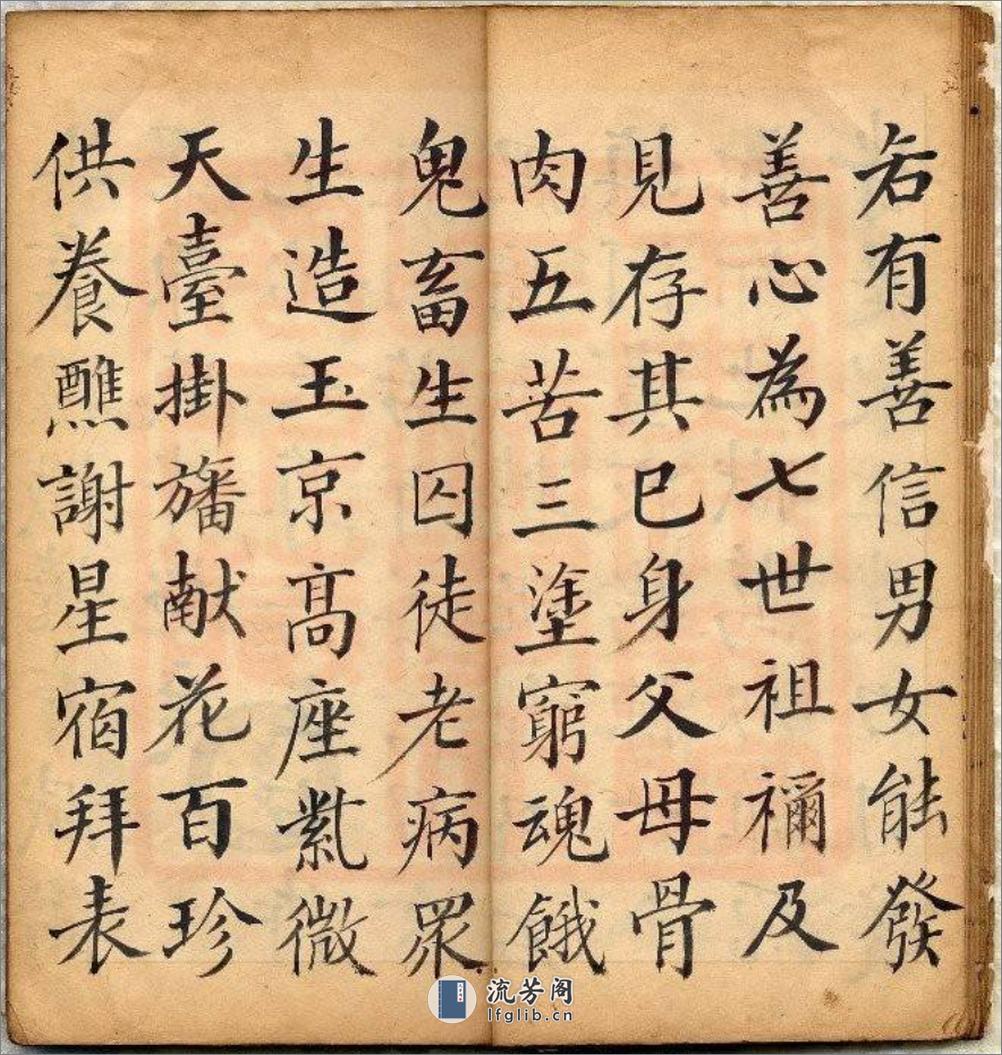 若有善信男女能發
善心為七世祖禰及
見存其已身父母骨
肉五苦三塗窮魂餓
鬼畜生囚徒老病眾
生造玉京高座紫微
天臺掛旛献花百珍
供養醮謝星宿拜表
流芳阁
lfglib.cn